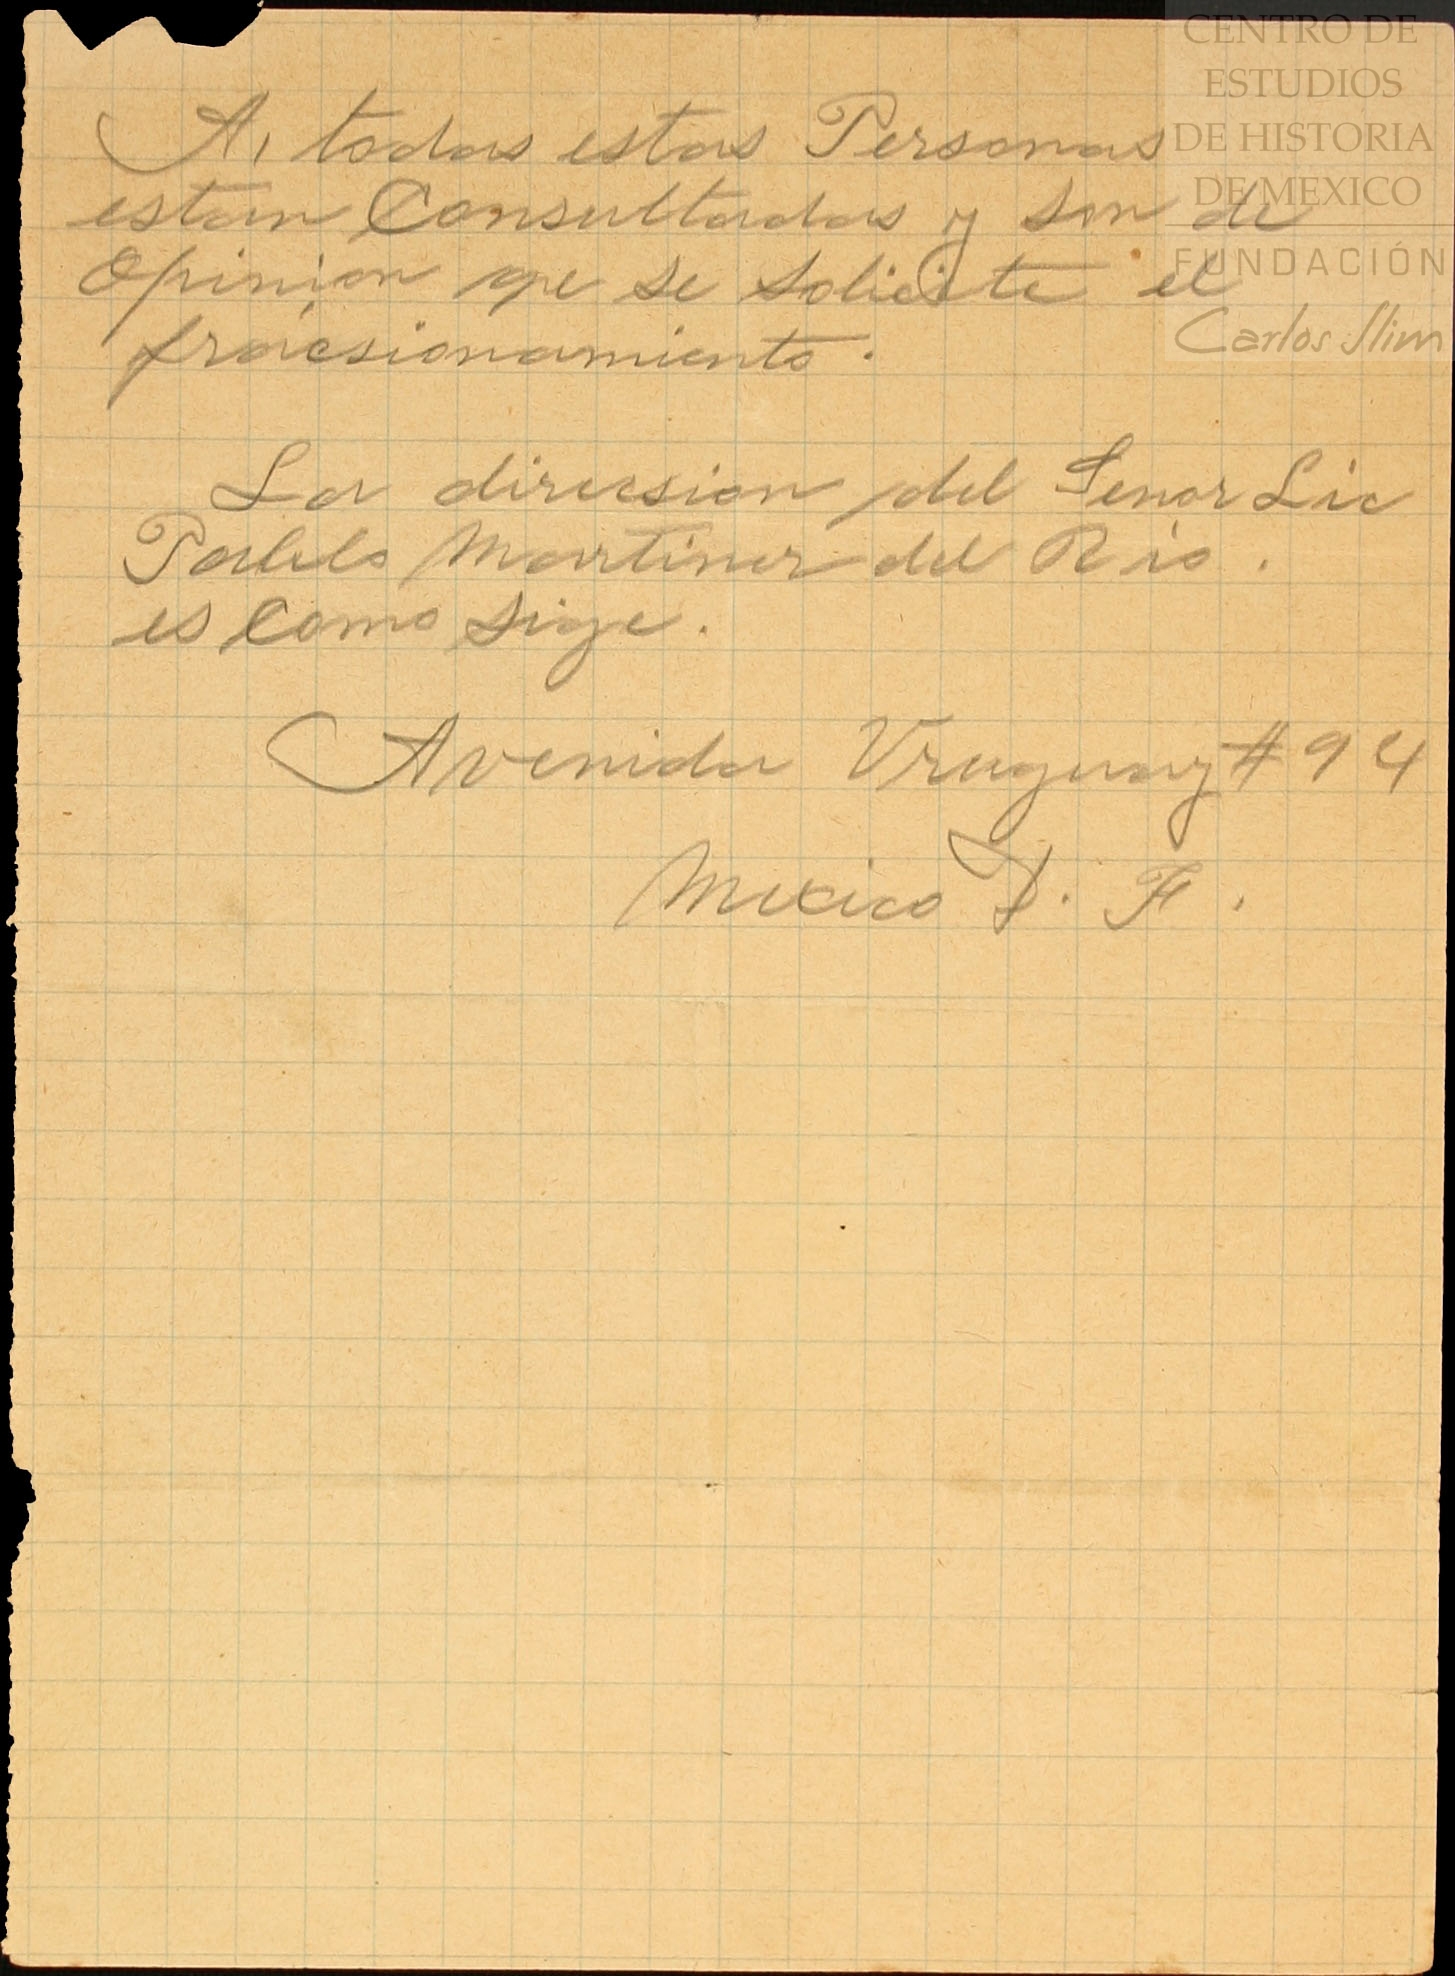 A, todas estas Personas
estan Consultadas y son de
Opinion qe se solicite el
fracsionamiento.
La direcsion del Senor Lic
Pablo Martinez del Rio.
es Como sige.
Avenida Uruguay # 94
Mexico D. F.
CENTRO DE
ESTUDIOS
DE HISTORIA
DE MEXICO
FUNDACIÓN
Carlos Slim